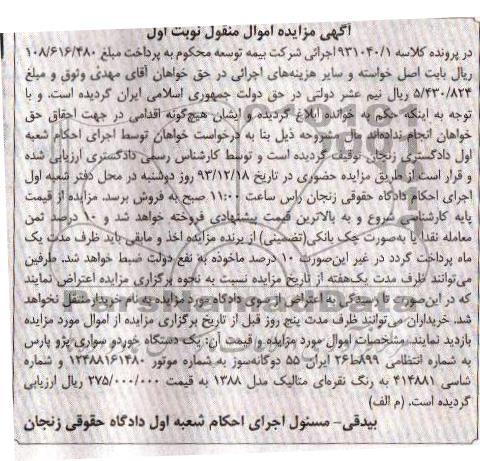 آگهی مزایده اموال منقول نوبت اول
در پرونده کلاسه ۹۳۱۰۴۰/۱ اجرائی شرکت بیمه توسعه محکوم به پرداخت مبلغ ۱۰۸/۶۱۶/۴۸۰
ریال بابت اصل خواسته و سایر هزینه‌های اجرائی در حق خواهان آقای مهدی وثوق و مبلغ
۵/۴۳۰/۸۲۴ ریال نیم عشر دولتی در حق دولت جمهوری اسلامی ایران گردیده است. و با
توجه به اینکه حکم به خوانده ابلاغ گردیده و ایشان هیچ‌گونه اقدامی در جهت احقاق حق
خواهان انجام نداده‌اند مال مشروحه ذیل بنا به درخواست خواهان توسط اجرای احکام شعبه
اول دادگستری زنجان توقیف گردیده است و توسط کارشناس رسمی دادگستری ارزیابی شده
و قرار است از طریق مزایده حضوری در تاریخ ۹۳/۱۲/۱۸ روز دوشنبه در محل دفتر شعبه اول
اجرای احکام دادگاه حقوقی زنجان راس ساعت ۱۱:۰۰ صبح به فروش برسد. مزایده از قیمت
پایه کارشناسی شروع و به بالاترین قیمت پیشنهادی فروخته خواهد شد و ۱۰ درصد ثمن
معامله نقدا یا به‌صورت چک بانکی(تضمینی) از برنده مزایده اخذ و مابقی باید ظرف مدت یک
ماه پرداخت گردد در غیر این‌صورت ۱۰ درصد ماخوذه به نفع دولت ضبط خواهد شد. طرفین
می‌توانند ظرف مدت یک‌هفته از تاریخ مزایده نسبت به نحوه برگزاری مزایده اعتراض نمایند
که در این‌صورت تا رسیدگی به اعتراض از سوی دادگاه مورد مزایده به نام خریدار منتقل نخواهد
شد. خریداران می‌توانند ظرف مدت پنج روز قبل از تاریخ برگزاری مزایده از اموال مورد مزایده
بازدید نمایند. مشخصات اموال مورد مزایده و قیمت آن: یک دستگاه خودرو سواری پژو پارس
به شماره انتظامی ۸۹۹ط۲۶ ایران ۵۵ دوگانه‌سوز به شماره موتور ۱۲۴۸۸۱۶۱۴۸۰ و شماره
شاسی ۴۱۴۸۸۱ به رنگ نقره‌ای متالیک مدل ۱۳۸۸ به قیمت ۲۷۵/۰۰۰/۰۰۰ ریال ارزیابی
گردیده است. (م الف)
بیدقی- مسئول اجرای احکام شعبه اول دادگاه حقوقی زنجان